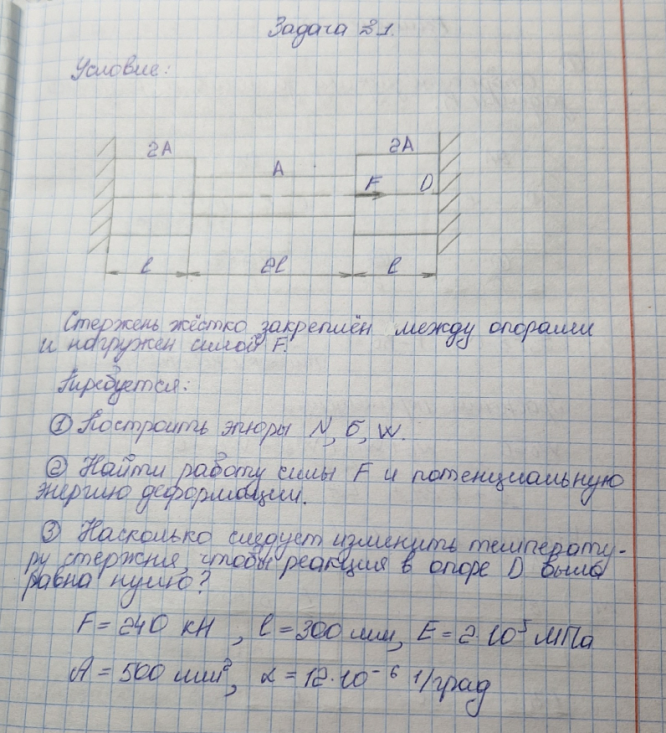 Задача 2.1.
Условие:
2A
A
2A
F
D
l
2l
l
Стержень жёстко закреплён между опорами
и нагружен силой F.
Требуется:
① Построить эпюры N, б, W.
② Найти работу силы F и потенциальную
энергию деформации.
③ Насколько следует изменить температу-
ру стержня, чтобы реакция в опоре D была
равна нулю?
F = 240 кН , l = 300 мм, E = 2·10⁵ МПа
A = 500 мм², α = 12·10⁻⁶ 1/град